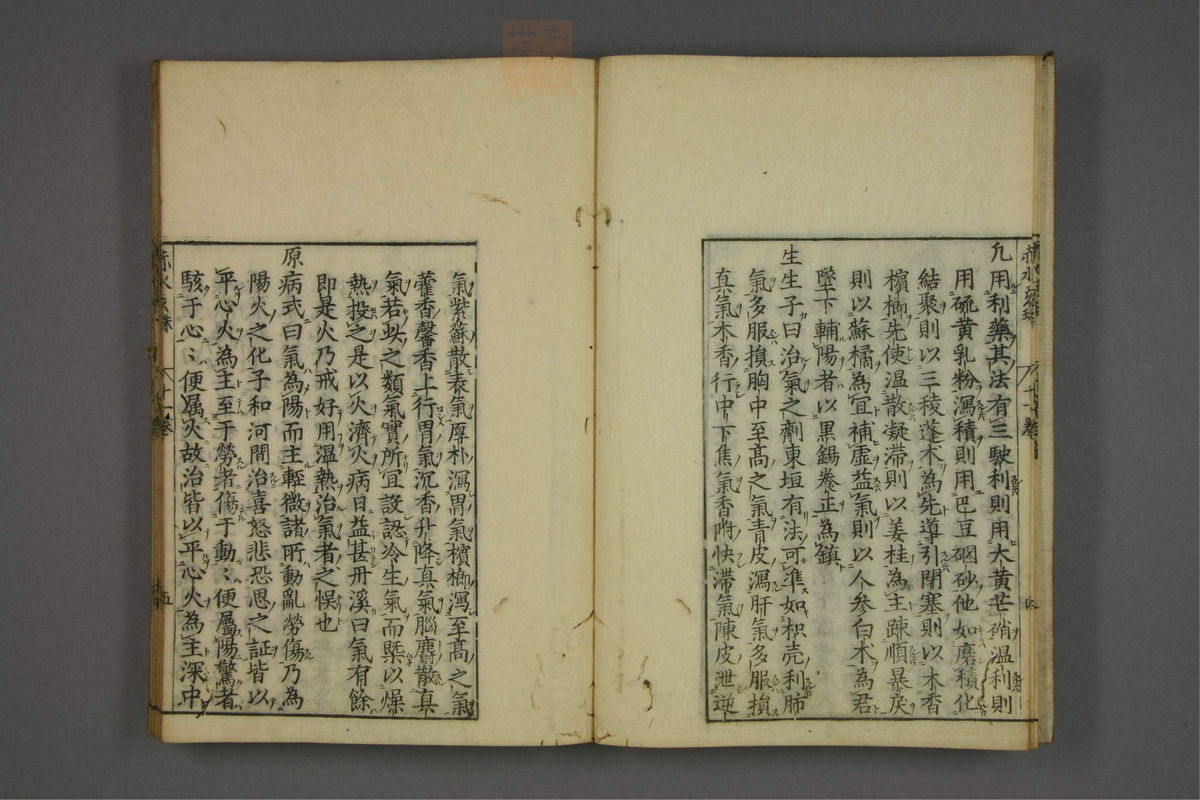 凢用利藥其法有三駛利則用大黄芒硝温利則
用硫黄乳粉瀉積則用巴豆硇砂他如磨積化
結聚則以三稜蓬朮為先導引閉塞則以木香
檳榔先使温散凝滯則以姜桂為主踈順暴戾
則以蘇橘為宜補虚益氣則以人参白朮為君
墜下輔陽者以黒錫養正為鎮
生生子曰治氣之劑東垣有法可準如枳壳利肺
氣多服損胸中至髙之氣青皮瀉肝氣多服損
真氣木香行中下焦氣香附快滯氣陳皮泄逆
氣紫蘇散表氣厚朴瀉胃氣檳榔瀉至髙之氣
藿香馨香上行胃氣沉香升降真氣腦麝散真
氣若此之類氣實所宜設認冷生氣而槩以燥
熱投之是以火濟火病日益甚丹溪曰氣有餘
即是火乃戒好用温熱治氣者之悞也
原病式曰氣為陽而主輕微諸所動亂勞傷乃為
陽火之化子和河間治喜怒悲恐思之証皆以
平心火為主至于勞者傷于動〻便屬陽驚者
駭于心〻便属火故治皆以平心火為主深中
十一卷
五